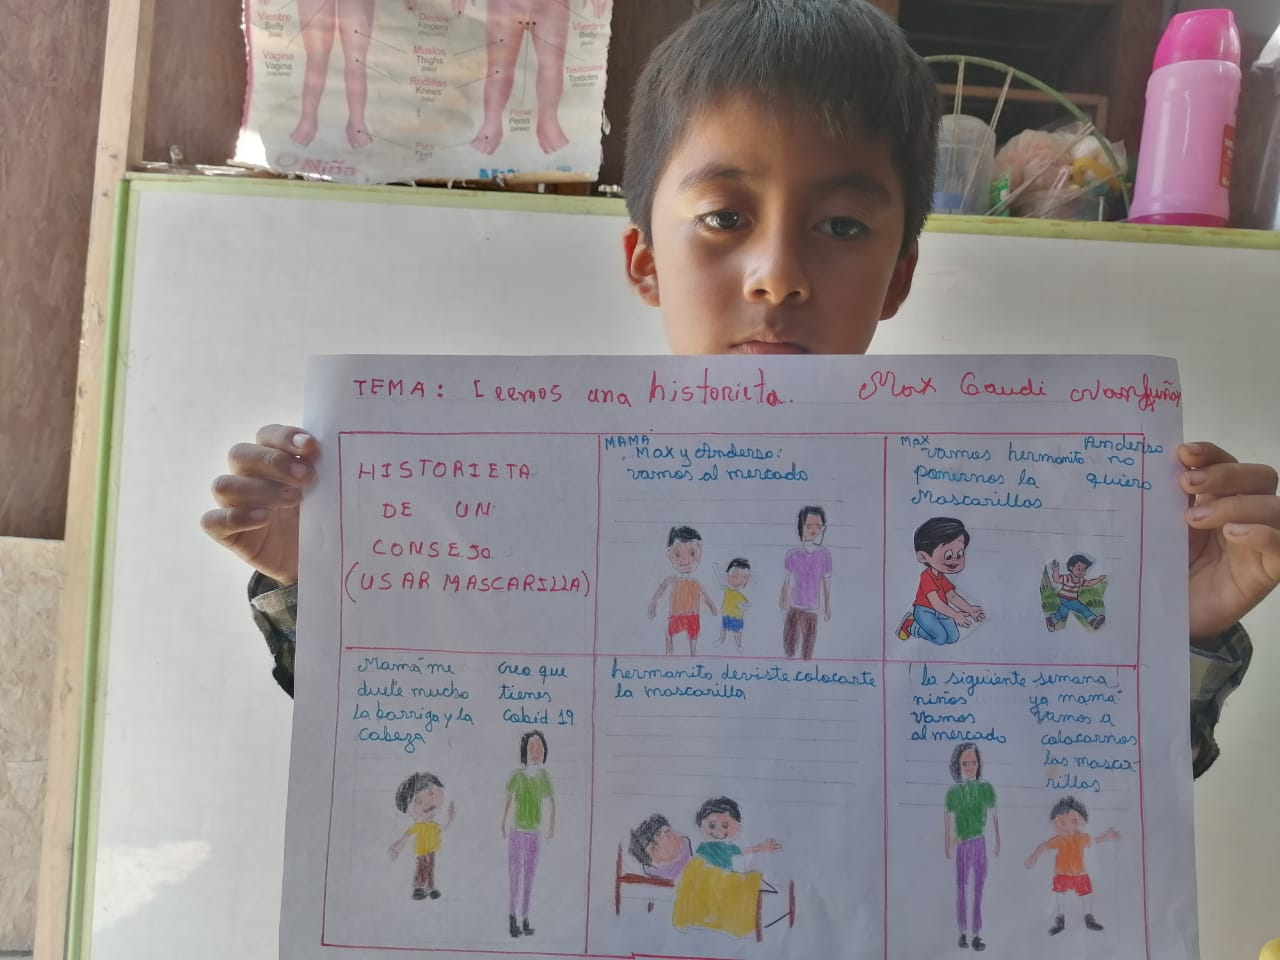 Vientre
Belly
Vagina
Vagina
Dedos
Fingers
Muslos
Thighs
Rodillas
Knees
Pies
Feet
Niña
Vientre
Belly
Testículos
Testicles
Pene
Penis
TEMA: Leemos una historieta. Max Gaudi
HISTORIETA
DE UN
CONSEJO
(USAR MASCARILLA)
MAMA
Max y Anderso:
vamos al mercado
Max
vamos hermanito
ponernos la
Mascarillas
Anderso
no
quiero
Mamá me
duele mucho
la barriga y la
Cabeza
Creo que
tienes
Cobid 19
hermanito deviste colocarte
la mascarilla
la siguiente semana
niños
vamos
al mercado
ya mamá
vamos a
colocarnos
las masca-
rillas